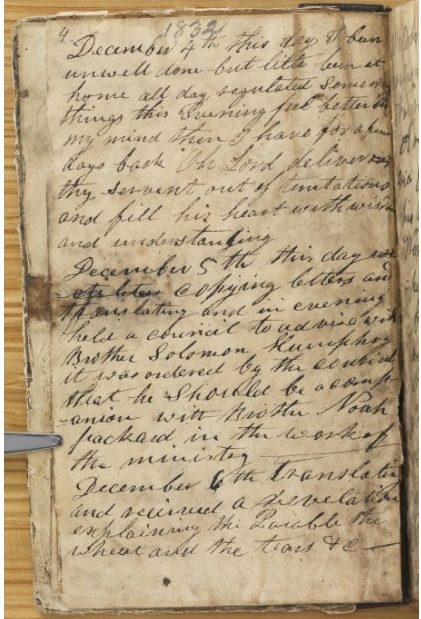 4 1832
December 4th this day I been
unwell done but little been at
home all day regulated some
things this Evening feel better in
my mind then I have for a few
days back Oh Lord deliver
thy servent out of temtations
and fill his heart with wisdom
and understanding
December 5th this day
copying letters and
translating and in evening
held a council to advise with
Brother Solomon Humphry
it was ordered by the council
that he should be a comp-
-anion with Brother Noah
packard in the work of
the ministry
December 6th translating
and received a Revelation
explaining the Parable the
wheat and the tears &c